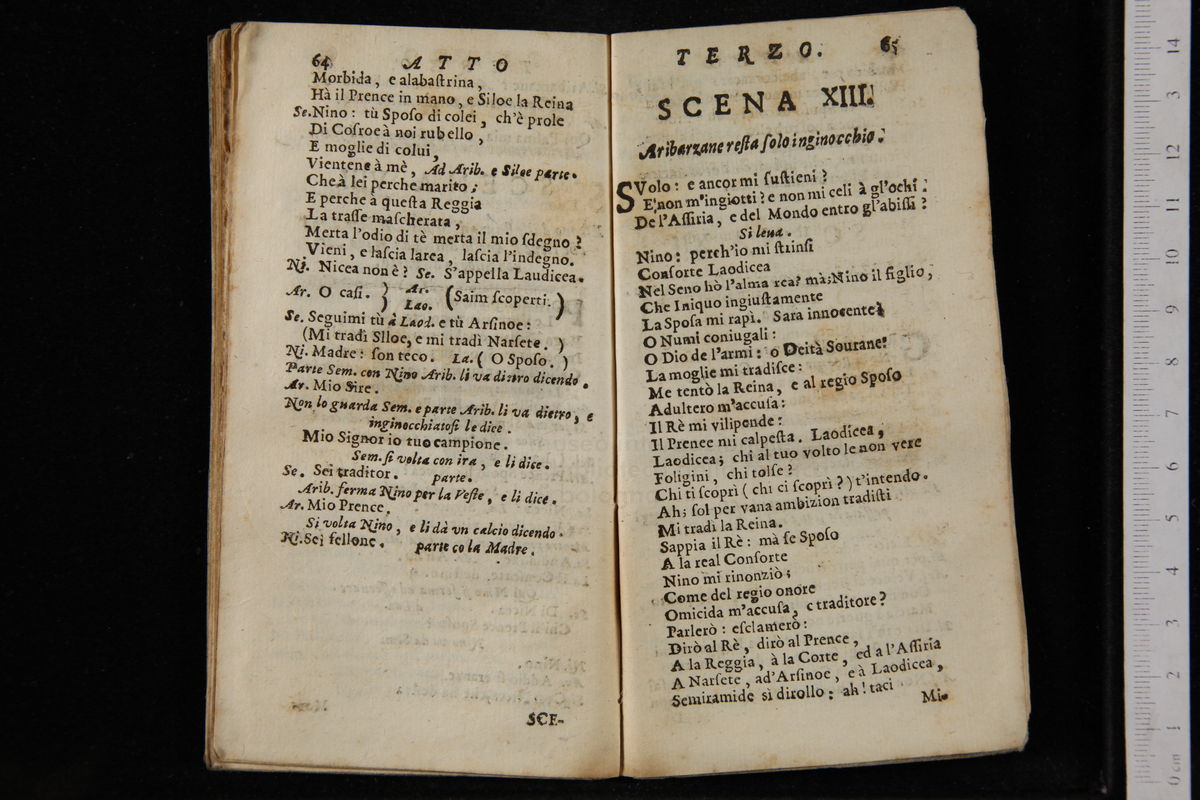 64 ATTO
Morbida, e alabaſtrina,
Hà il Prence in mano, e Siloe la Reina
Se. Nino: tù Spoſo di colei, ch'è prole
Di Coſroe à noi rubello,
E moglie di colui,
Vientene à mè, Ad Arib. e Siloe parte.
Che à lei perche marito;
E perche à queſta Reggia
La traſſe maſcherata,
Merta l'odio di tè merta il mio ſdegno?
Vieni, e laſcia larea, laſcia l'indegno.
Ni. Nicea non è? Se. S'appella Laudicea.
Ar. O caſi. } Ar. Lao. (Saim ſcoperti.)
Se. Seguimi tù à Laod. e tù Arſinoe:
(Mi tradì Slloe, e mi tradì Narſete.)
Ni. Madre: ſon teco. La. (O Spoſo.)
Parte Sem. con Nino Arib. li va dietro dicendo.
Ar. Mio Sire.
Non lo guarda Sem. e parte Arib. li va dietro, e
inginocchiatoſi le dice.
Mio Signor io tuo campione.
Sem. ſi volta con ira, e li dice.
Se. Sei traditor. parte.
Arib. ferma Nino per la Veſte, e li dice.
Ar. Mio Prence.
Si volta Nino, e li dà vn calcio dicendo.
Ni. Sei fellone. parte co la Madre.
SCE-
TERZO. 65
SCENA XIII.
Aribarzane reſta ſolo inginocchio.
SVolo: e ancor mi ſuſtieni?
E non m'ingiotti? e non mi celi à gl'ochi
De l'Aſſiria, e del Mondo entro gl'abiſſi?
Si leua.
Nino: perch'io mi ſtrinſi
Conſorte Laodicea
Nel Seno hò l'alma rea? mà; Nino il figlio,
Che Iniquo ingiuſtamente
La Spoſa mi rapì. Sara innocente?
O Numi coniugali:
O Dio de l'armi: o Deità Sourane!
La moglie mi tradiſce:
Me tentò la Reina, e al regio Spoſo
Adultero m'accuſa:
Il Rè mi vilipende:
Il Prence mi calpeſta. Laodicea,
Laodicea; chi al tuo volto le non vere
Foligini, chi tolſe?
Chi ti ſcoprì (chi ci ſcoprì?) t'intendo.
Ah; ſol per vana ambizion tradiſti
Mi tradì la Reina.
Sappia il Rè: mà ſe Spoſo
A la real Conſorte
Nino mi rinonziò;
Come del regio onore
Omicida m'accuſa, e traditore?
Parlerò: eſclamerò:
Dirò al Rè, dirò al Prence,
A la Reggia, à la Corte, ed a l'Aſſiria
A Narſete, ad'Arſinoe, e à Laodicea,
Semiramide si dirollo: ah! taci
Mi-